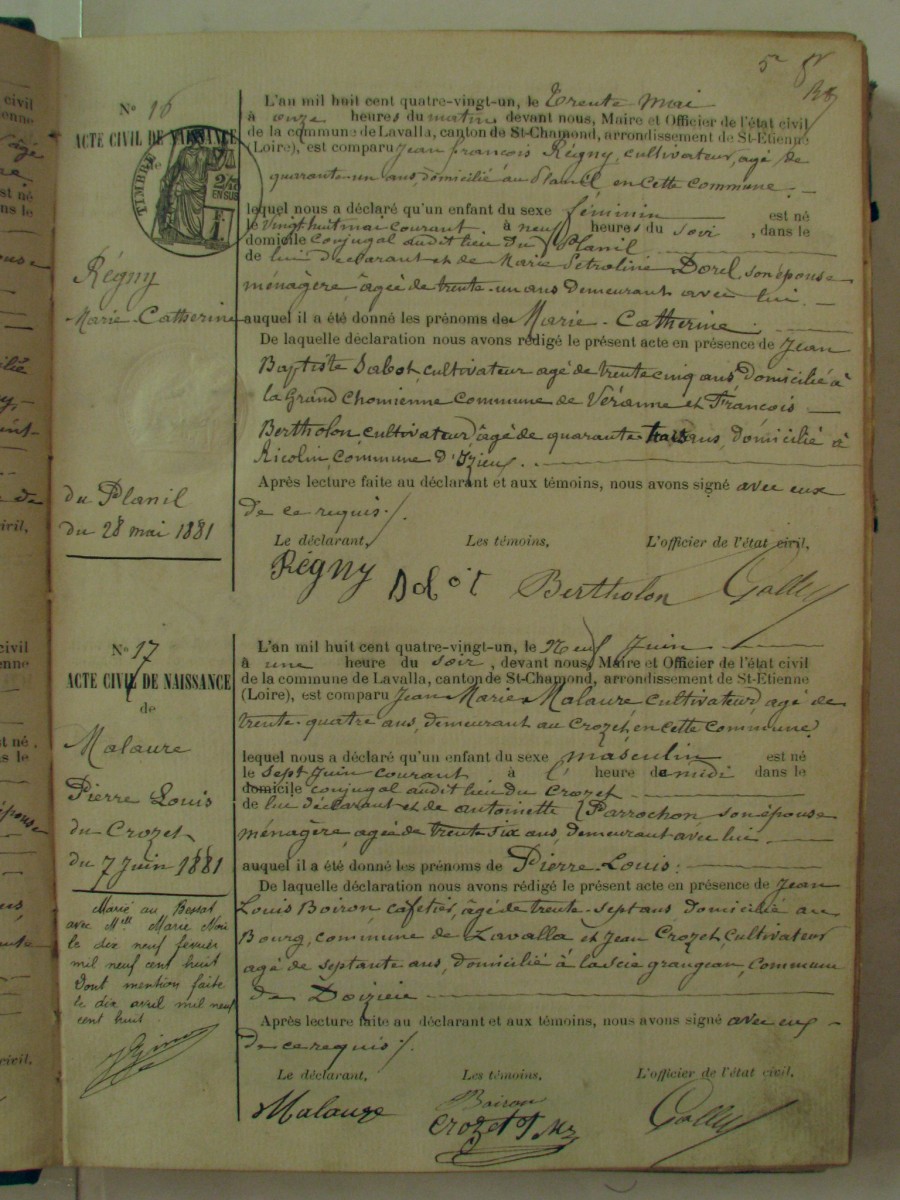 5
8
N° 16
ACTE CIVIL DE NAISSANCE
de
TIMBRE
2/10
EN SUS
Régny
Marie-Catherine
du Planil
du 28 mai 1881
L'an mil huit cent quatre-vingt-un, le Trente Mai
à onze heures du matin devant nous, Maire et Officier de l'état civil
de la commune de Lavalla, canton de St-Chamond, arrondissement de St-Etienne
(Loire), est comparu Jean François Régny, cultivateur, agé de
quarante-un ans, domicilié au Planil, en cette commune.
lequel nous a déclaré qu'un enfant du sexe féminin est né
le vingt huit mai courant, à neuf heures du soir, dans le
domicile conjugal audit lieu du Planil
de lui déclarant et de Marie Petroline Dorel, son épouse
ménagère, âgée de trente-un ans demeurant avec lui.
auquel il a été donné les prénoms de Marie-Catherine.
De laquelle déclaration nous avons rédigé le présent acte en présence de Jean
Baptiste Dabot, cultivateur agé de trente cinq ans, domicilié à
la Grand Chomienne Commune de Véranne et François
Bertholon, cultivateur, âgé de quarante trois ans, domicilié à
Ricolin, Commune d'Izieux.
Après lecture faite au déclarant et aux témoins, nous avons signé avec eux
de ce requis./.
Le déclarant, Les témoins, L'officier de l'état civil,
Régny Dabot Bertholon Galley
N° 17
ACTE CIVIL DE NAISSANCE
de
Malaure
Pierre Louis
du Crozet
du 7 juin 1881
Marié au Bessat
avec Mlle Marie
le dix neuf fevrier
mil neuf cent huit
Dont mention faite
le dix avril mil neuf
cent huit
L'an mil huit cent quatre-vingt-un, le Neuf Juin
à une heure du soir, devant nous, Maire et Officier de l'état civil
de la commune de Lavalla, canton de St-Chamond, arrondissement de St-Etienne
(Loire), est comparu Jean Marie Malaure, cultivateur, agé de
trente-quatre ans, demeurant au Crozet, en cette commune
lequel nous a déclaré qu'un enfant du sexe masculin est né
le sept Juin courant à l' heure de midi dans le
domicile conjugal audit lieu du Crozet
de lui déclarant et de antoinette Parrochon son épouse
ménagère, agée de trente-six ans, demeurant avec lui.
auquel il a été donné les prénoms de Pierre-Louis.
De laquelle déclaration nous avons rédigé le présent acte en présence de Jean
Louis Boiron cafetier, âgé de trente-sept ans domicilié au
Bourg, commune de Lavalla et Jean Crozet, Cultivateur
agé de septante ans, domicilié à la scie granjean, commune
de Doizieu
Après lecture faite au déclarant et aux témoins, nous avons signé avec eux
de ce requis./.
Le déclarant, Les témoins, L'officier de l'état civil.
Malaure Boiron Galley
Crozet J M